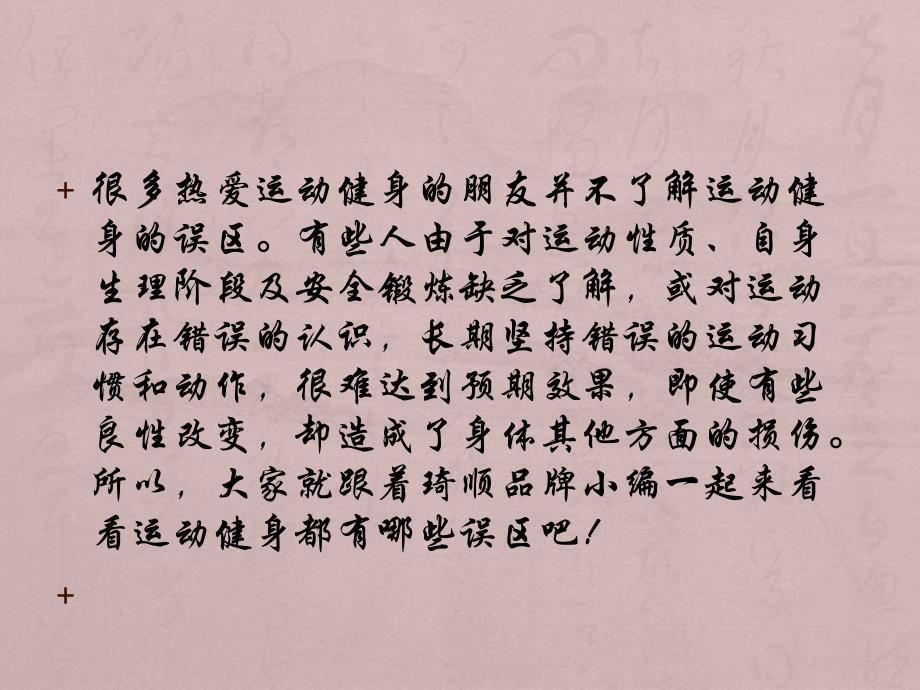 + 很多热爱运动健身的朋友并不了解运动健
身的误区。有些人由于对运动性质、自身
生理阶段及安全锻炼缺乏了解，或对运动
存在错误的认识，长期坚持错误的运动习
惯和动作，很难达到预期效果，即使有些
良性改变，却造成了身体其他方面的损伤。
所以，大家就跟着琦顺品牌小编一起来看
看运动健身都有哪些误区吧！
+